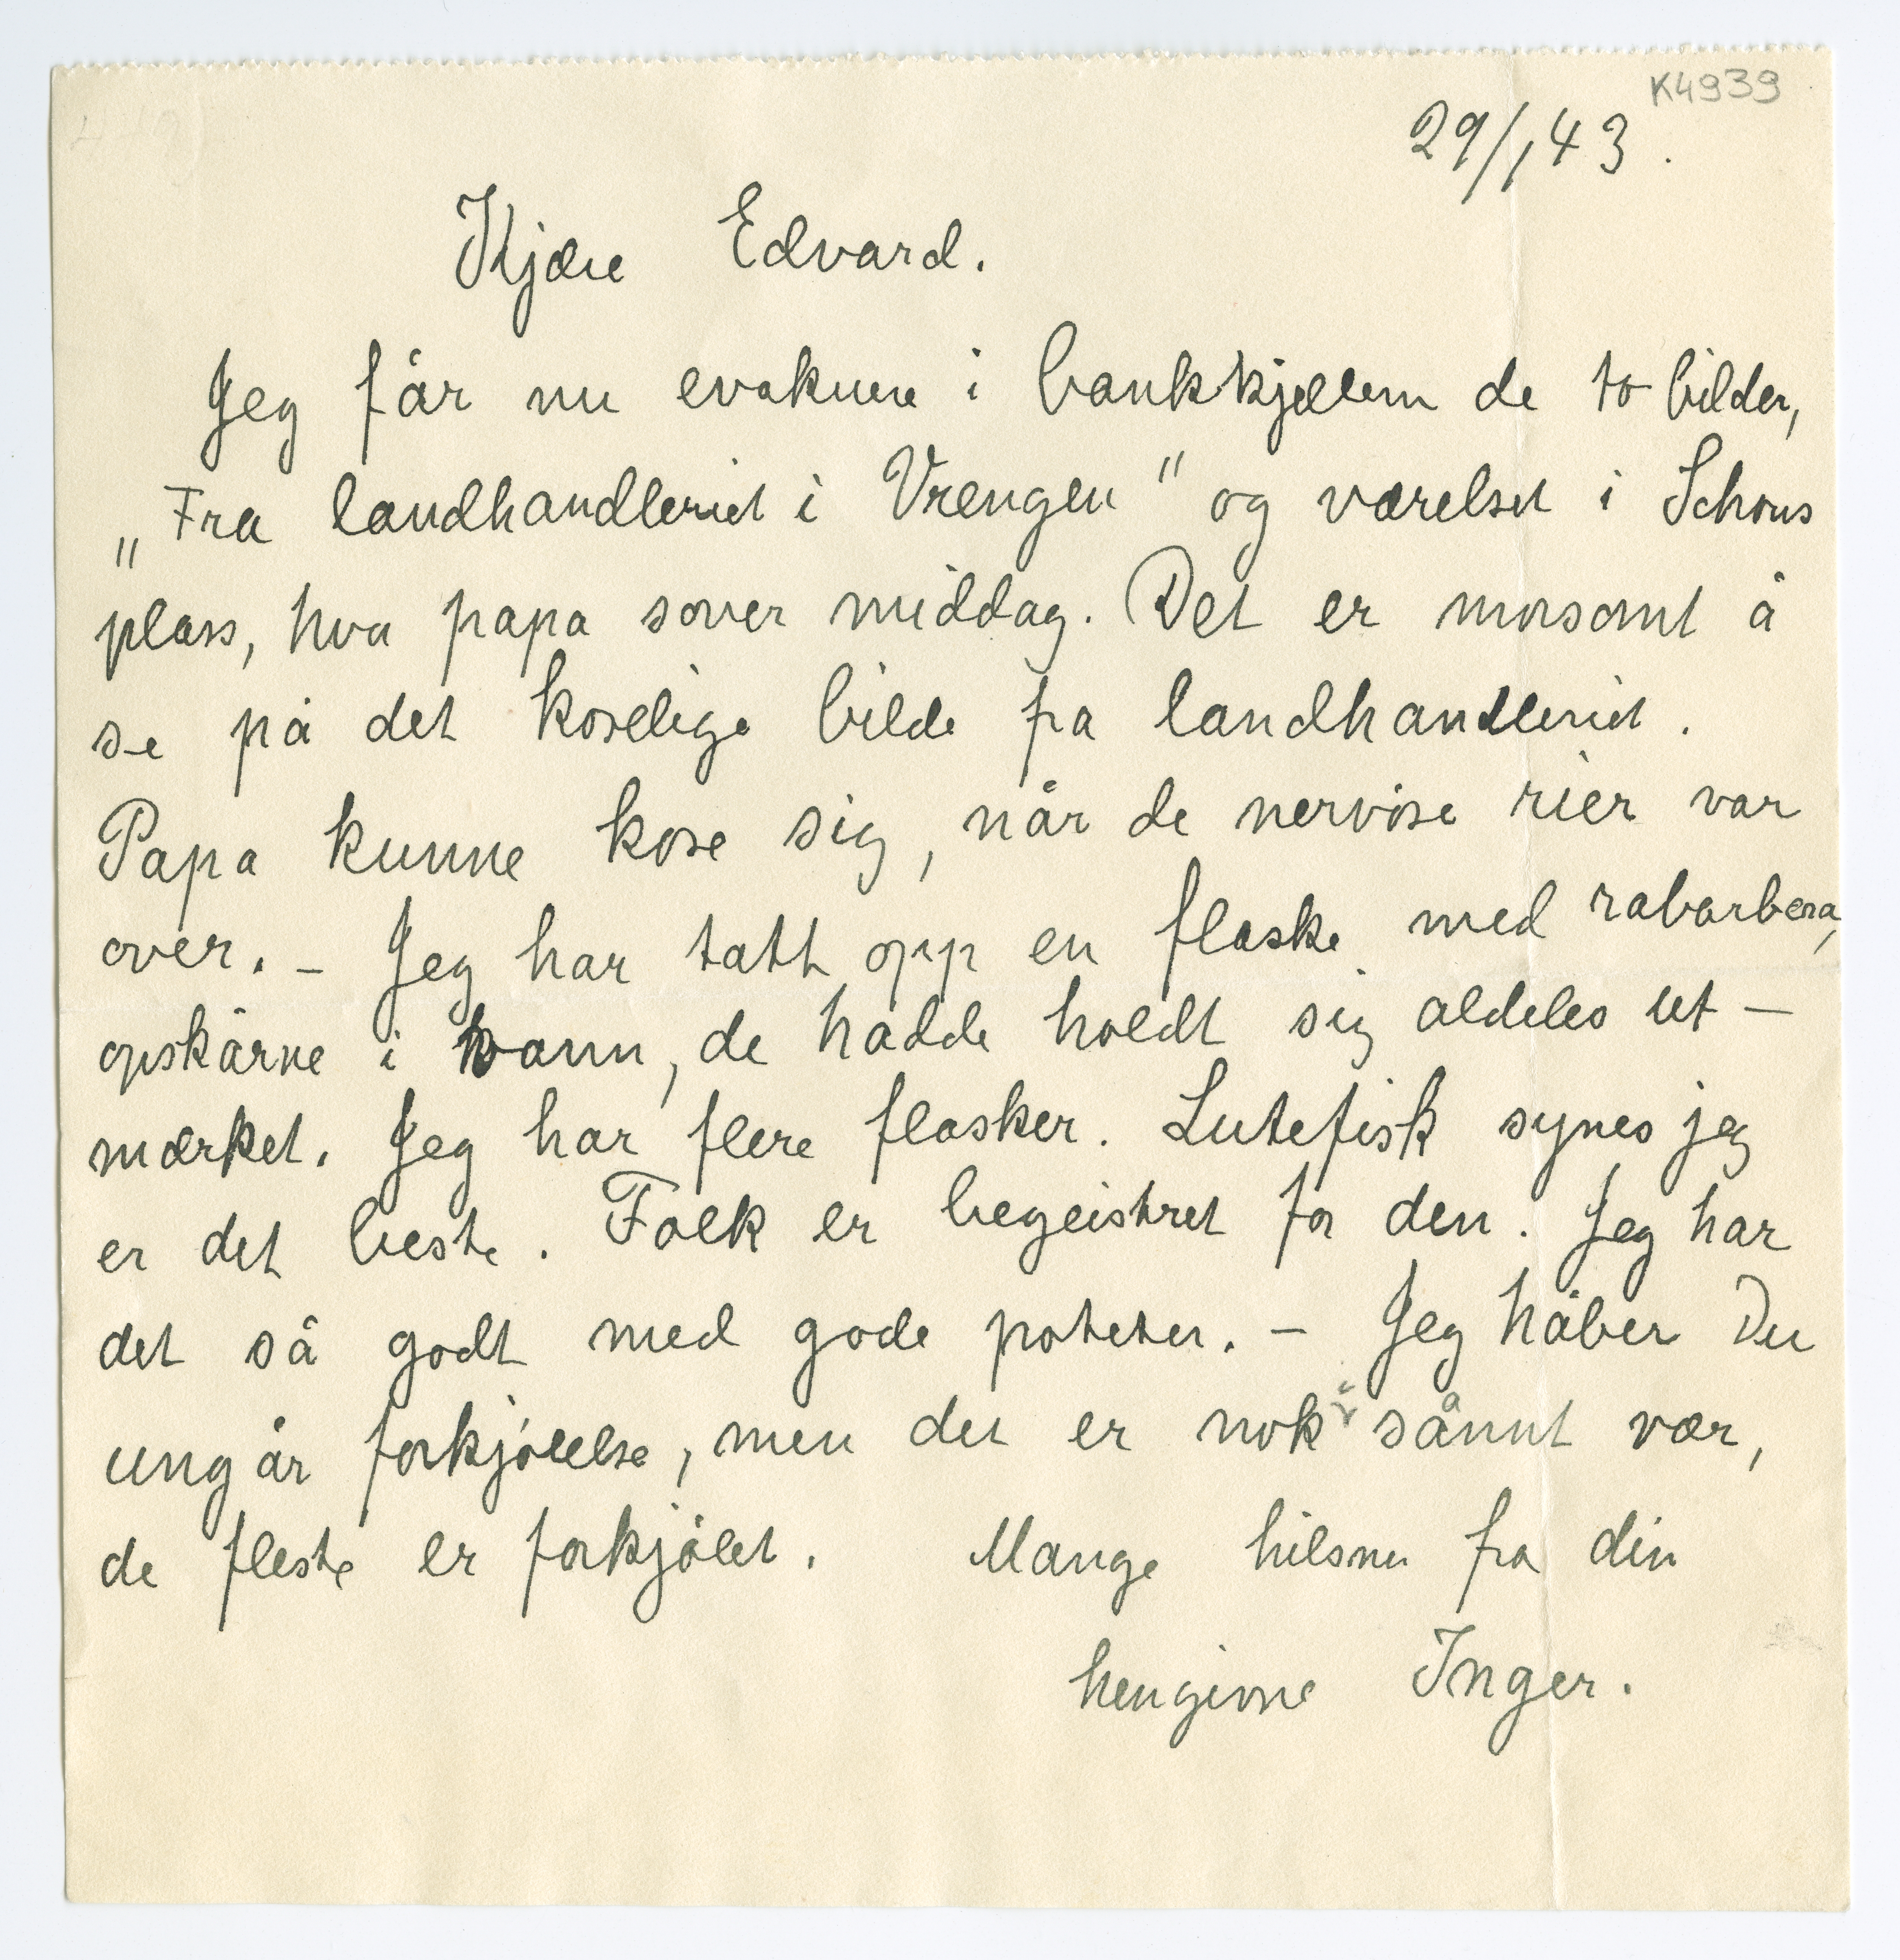 K4939
29/1 43.
Kjære Edvard.
Jeg får nu evakuere i bankkjælleren de to bilder,
„Fra landhandleriet i Vrengen" og værelset i Schous
plass, hvor papa sover middag. Det er morsomt å
se på det koselige bilde fra landhandleriet.
Papa kunne kose sig, når de nervøse rier var
over. – Jeg har tatt opp en flaske med rabarbera,
opskårne i vann, de hadde holdt sig aldeles ut –
mærket. Jeg har flere flasker. Lutefisk synes jeg
er det beste. Folk er begeistret for den. Jeg har
det så godt med gode poteter. – Jeg håber Du
ungår forkjølelse, men det er nok i sånnt vær,
de fleste er forkjølet. Mange hilsner fra din
hengivne Inger.